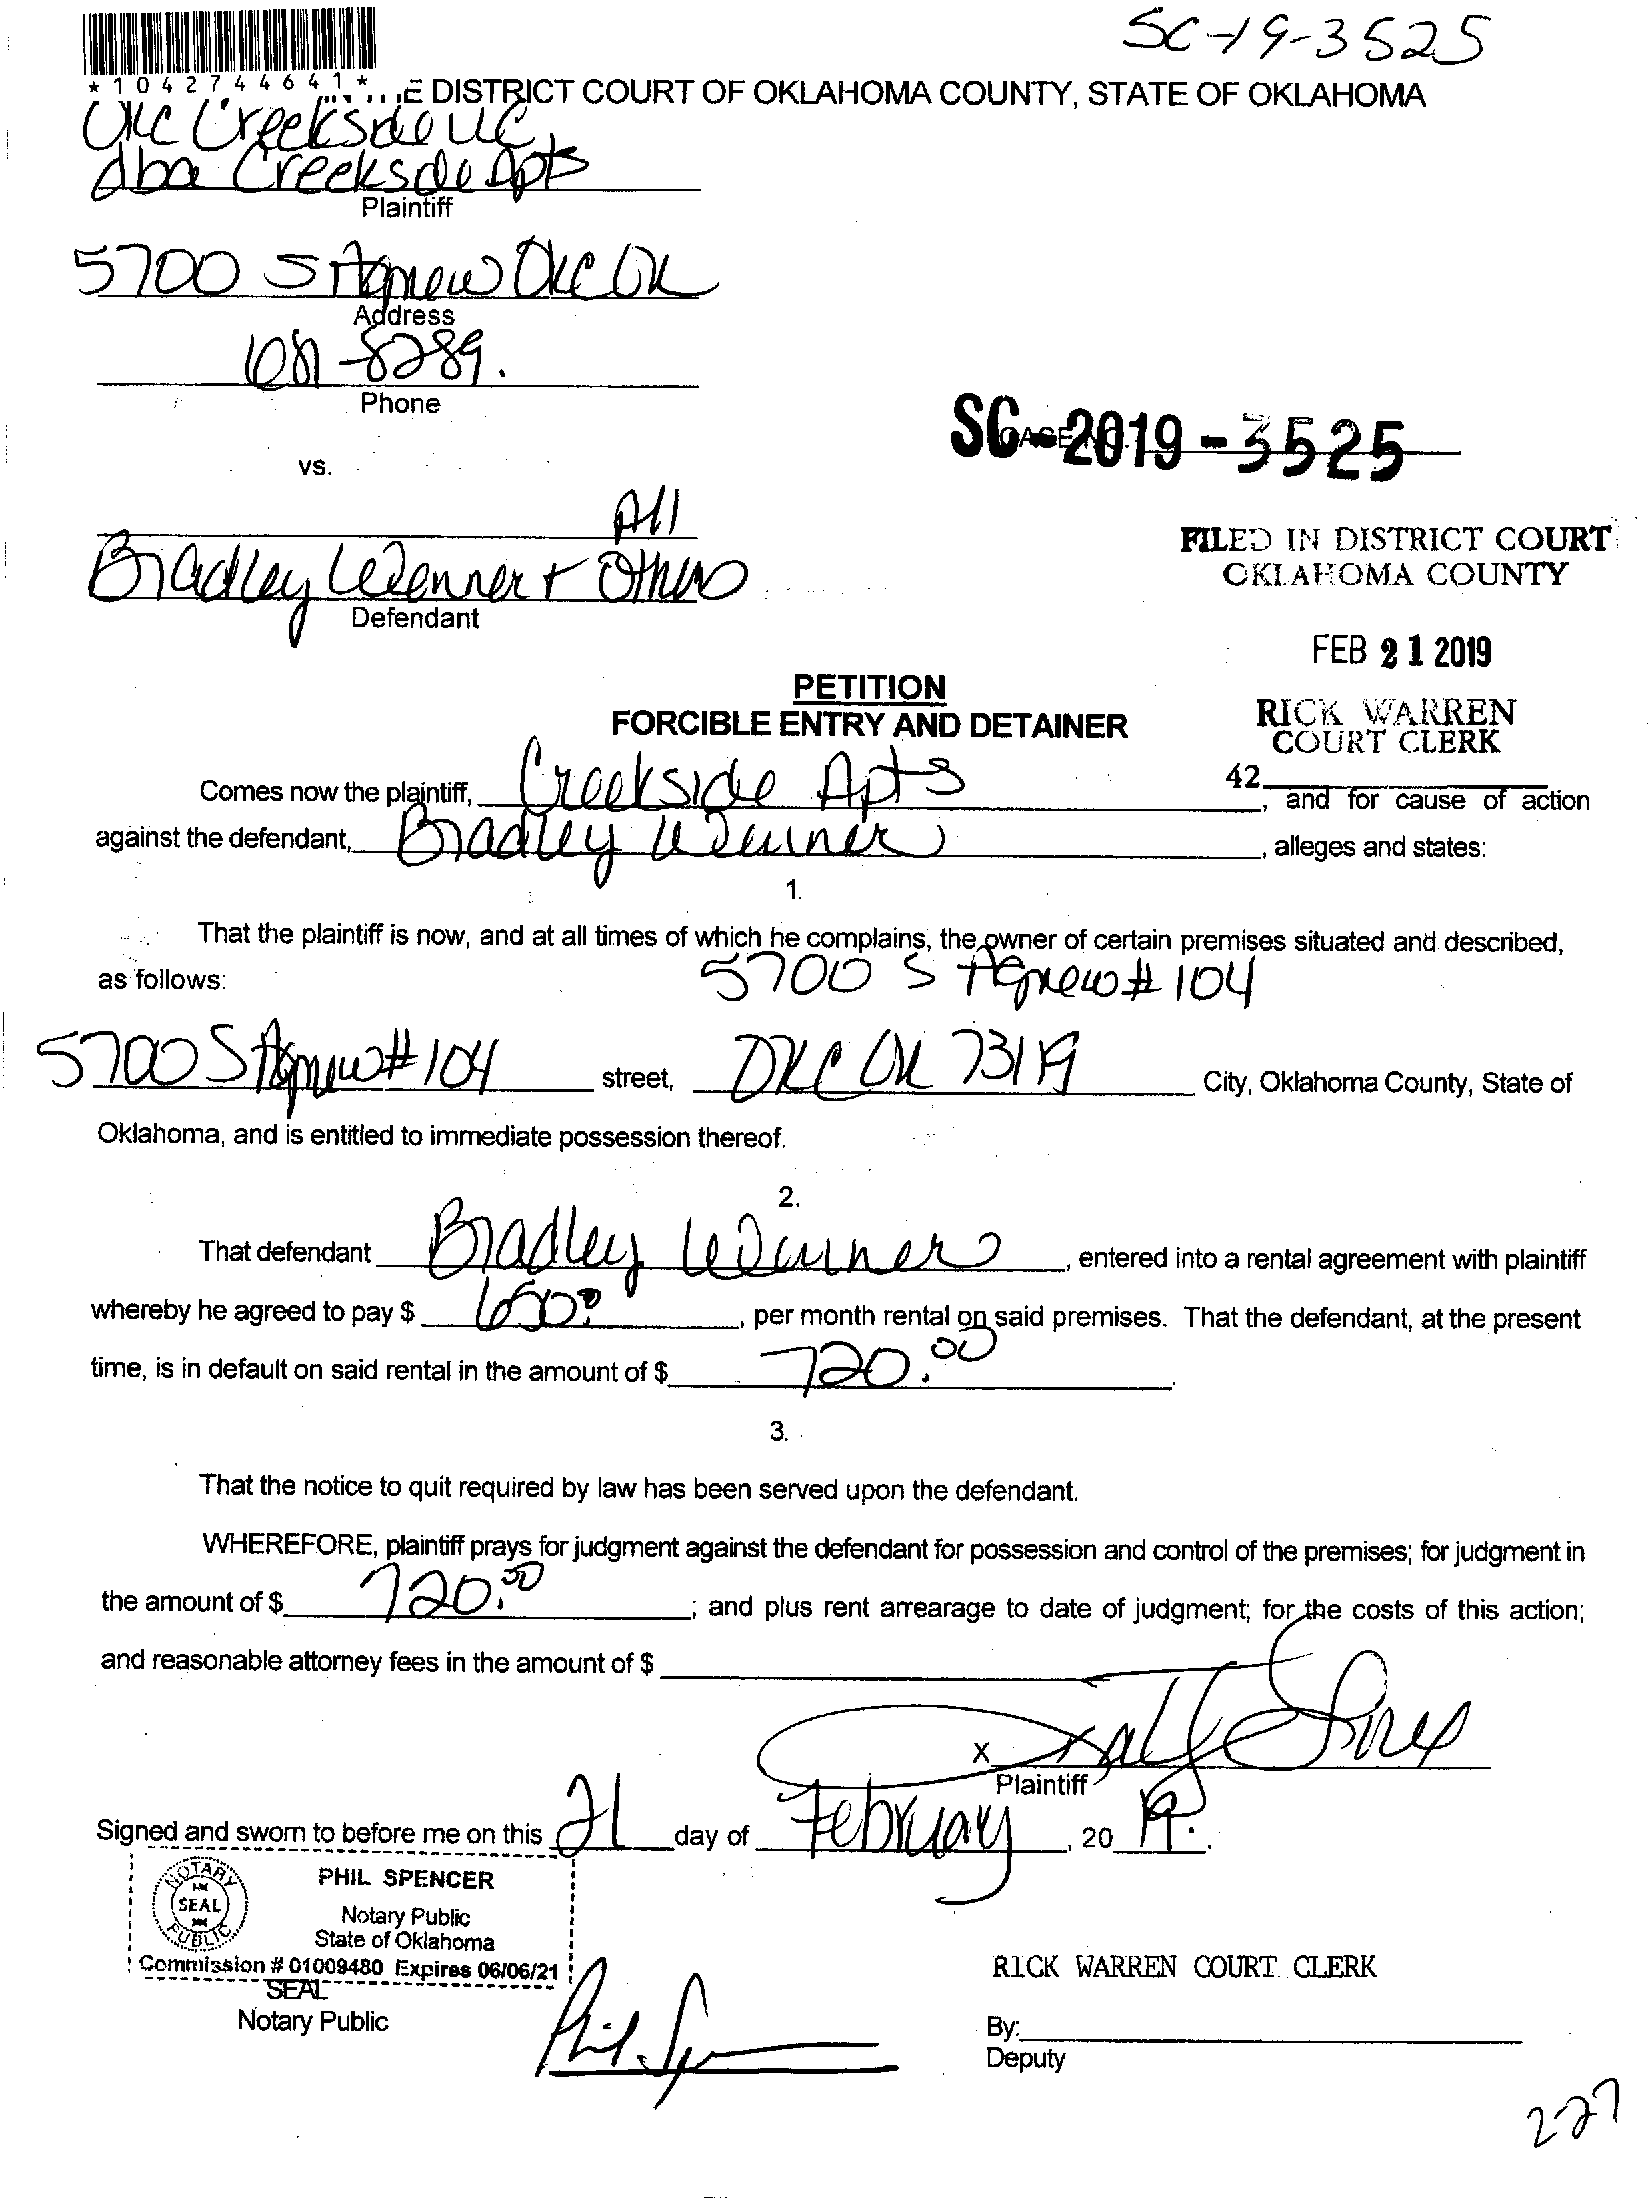 SC-19-3525
*1042744641*
E DISTRICT COURT OF OKLAHOMA COUNTY, STATE OF OKLAHOMA
OKC Creekside LLC
dba Creekside Apts
Plaintiff
5700 S Agnew OKC OK
Address
681-8289.
Phone
SC-2019-3525
vs.
All
Bradley Wenner + Others
Defendant
FILED IN DISTRICT COURT
OKLAHOMA COUNTY
FEB 21 2019
RICK WARREN
COURT CLERK
42
PETITION
FORCIBLE ENTRY AND DETAINER
Comes now the plaintiff, Creekside Apts, and for cause of action
against the defendant, Bradley Wenner, alleges and states:
1.
That the plaintiff is now, and at all times of which he complains, the owner of certain premises situated and described,
as follows: 5700 S Agnew #104
5700 S Agnew #104 street, OKC OK 73119 City, Oklahoma County, State of
Oklahoma, and is entitled to immediate possession thereof.
2.
That defendant Bradley Wenner, entered into a rental agreement with plaintiff
whereby he agreed to pay $ 650.00, per month rental on said premises. That the defendant, at the present
time, is in default on said rental in the amount of $ 720.00.
3.
That the notice to quit required by law has been served upon the defendant.
WHEREFORE, plaintiff prays for judgment against the defendant for possession and control of the premises; for judgment in
the amount of $ 720.00; and plus rent arrearage to date of judgment; for the costs of this action;
and reasonable attorney fees in the amount of $
X
Plaintiff
Signed and sworn to before me on this 21 day of February, 2019.
NOTARY PUBLIC
SEAL
PHIL SPENCER
Notary Public
State of Oklahoma
Commission # 01009480 Expires 06/06/21
SEAL
Notary Public
Phil Sp
RICK WARREN COURT CLERK
By:
Deputy
227